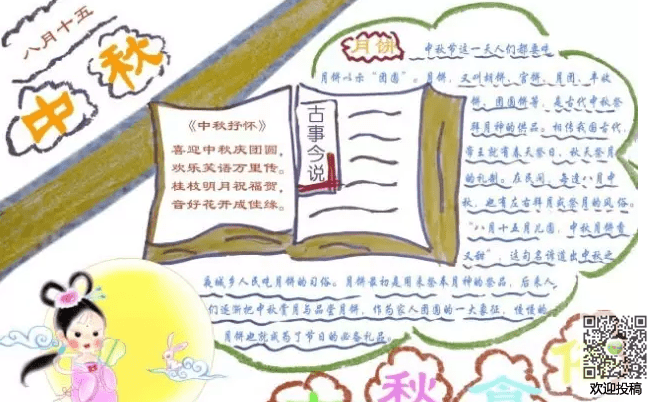 八月十五
中秋
《中秋抒怀》
喜迎中秋庆团圆，
欢乐芙语万里传。
桂枝明月祝福贺，
音好花开成佳缘。
古事今说
月饼
中秋节这一天人们都要吃
月饼以示“团圆”。月饼，又叫胡饼、宫饼、月团、丰收
饼、团圆饼等，是古代中秋祭
拜月神的供品。相传我国古代，
帝王就有春天祭日，秋天祭月
的礼制。在民间，每逢八月中
秋，也有左右拜月或祭月的风俗。
“八月十五月儿圆，中秋月饼香
又甜”，这句名谚道出中秋之
夜城乡人民吃月饼的习俗。月饼最初是用来祭奉月神的祭品，后来人
们逐渐把中秋赏月与品尝月饼，作为家人团圆的一大象征，慢慢的
月饼也就成为了节日的必备礼品。
秋食
欢迎投稿